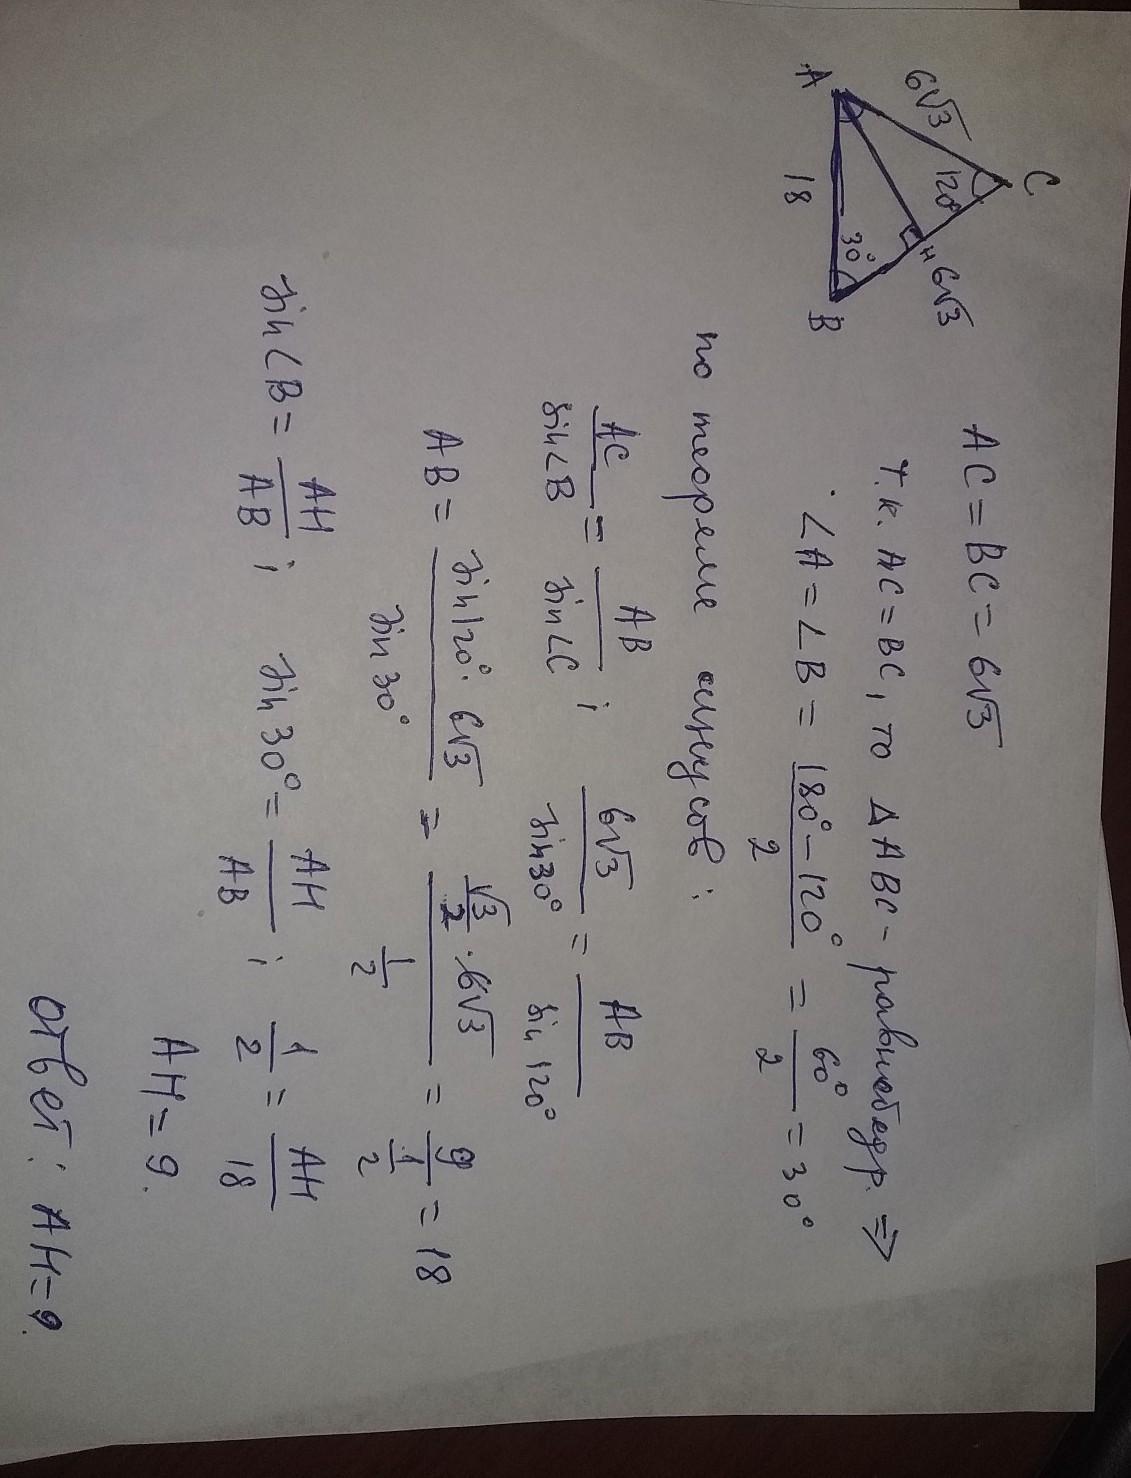 C
6√3
120°
H
6√3
30°
A
18
B
AC = BC = 6√3
т.к. AC = BC, то ΔABC - равнобедр. ⇒
∠A = ∠B = (180° - 120°)/2 = 60°/2 = 30°
по теореме синусов:
AC/sin∠B = AB/sin∠C ; 6√3/sin30° = AB/sin 120°
AB = (sin120° · 6√3)/sin 30° = (√3/2 · 6√3)/(1/2) = 9/(1/2) = 18
sin∠B = AH/AB ; sin 30° = AH/AB ; 1/2 = AH/18
AH = 9.
Ответ: AH = 9.